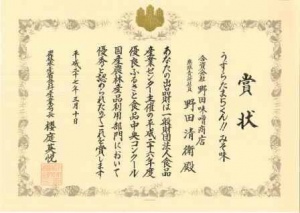 賞状
うずらたまごくん!!みそ味
合資会社 野田味噌商店
野田清衛殿
あなたの出品財は一般財団法人食品
産業センター主催の平成二十六年度
優良ふるさと食品中央コンクール
国産農林産品利用部門において
優秀と認められたのでこれを賞します
平成二十七年三月十日
農林水産省食料産業局長 櫻庭英悦